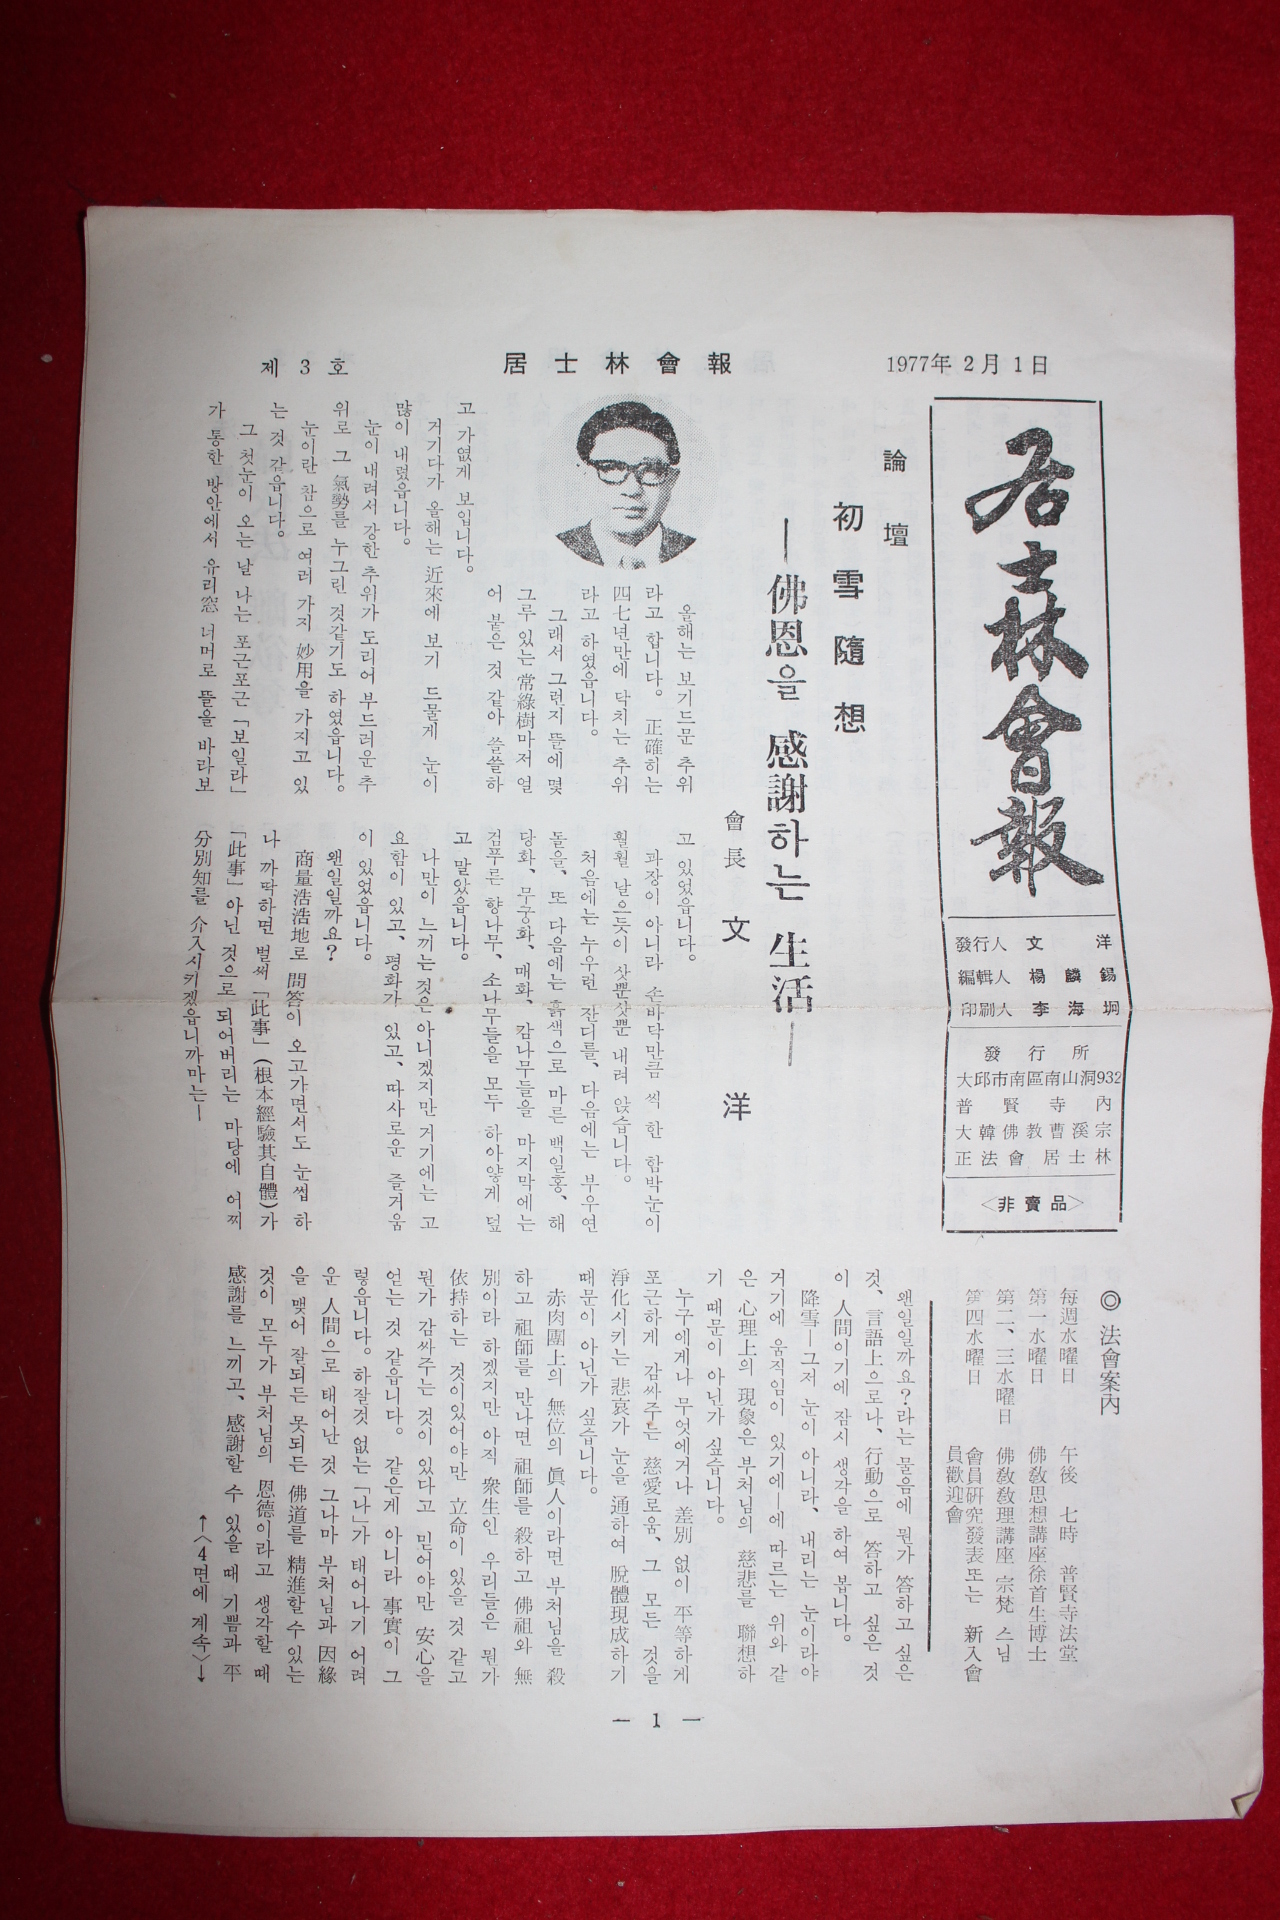 1977年 2月 1日
居士林會報
제 3 호
居士林會報
發行人 文 洋
編輯人 楊麟錫
印刷人 李海坰
發行所
大邱市南區南山洞932
普賢寺內
大韓佛教曹溪宗
正法會居士林
<非賣品>
◎ 法會案內
每週水曜日 午後 七時 普賢寺法堂
第一水曜日 佛敎思想講座徐首生博士
第二、三水曜日 佛敎敎理講座 宗梵 스님
第四水曜日 會員硏究發表또는 新入會
員歡迎會
論壇
初雪隨想
—佛恩을 感謝하는 生活—
會長 文 洋
올해는 보기드문 추위
라고 합니다。 正確히는
四七년만에 닥치는 추위
라고 하였읍니다。
그래서 그런지 뜰에 몇
그루 있는 常綠樹마저 얼
어 붙은 것 같아 쓸쓸하
고 가엾게 보입니다。
거기다가 올해는 近來에 보기 드물게 눈이
많이 내렸읍니다。
눈이 내려서 강한 추위가 도리어 부드러운 추
위로 그 氣勢를 누그린 것같기도 하였읍니다。
눈이란 참으로 여러 가지 妙用을 가지고 있
는 것 같읍니다。
그 첫눈이 오는 날 나는 포근포근 「보일라」
가 통한 방안에서 유리窓 너머로 뜰을 바라보
고 있었읍니다。
과장이 아니라 손바닥만큼 씩 한 함박눈이
훨훨 날으듯이 삿뿐삿뿐 내려 앉습니다。
처음에는 누우런 잔디를、다음에는 부우연
돌을、또 다음에는 흙색으로 마른 백일홍、해
당화、무궁화、매화、감나무들을 마지막에는
검푸른 향나무、소나무들을 모두 하아얗게 덮
고 말았읍니다。
나만이 느끼는 것은 아니겠지만 거기에는 고
요함이 있고、평화가 있고、따사로운 즐거움
이 있었읍니다。
왠일일까요?
商量浩浩地로 問答이 오고가면서도 눈썹 하
나 까딱하면 벌써 「此事」(根本經驗其自體)가
「此事」 아닌 것으로 되어버리는 마당에 어찌
分別知를 介入시키겠읍니까마는—
왠일일까요?라는 물음에 뭔가 答하고 싶은
것、言語上으로나、行動으로 答하고 싶은 것
이 人間이기에 잠시 생각을 하여 봅니다。
降雪—그저 눈이 아니라、내리는 눈이라야
거기에 움직임이 있기에—에 따르는 위와 같
은 心理上의 現象은 부처님의 慈悲를 聯想하
기 때문이 아닌가 싶습니다。
누구에게나 무엇에거나 差別 없이 平等하게
포근하게 감싸주는 慈愛로움、그 모든 것을
淨化시키는 悲哀가 눈을 通하여 脫體現成하기
때문이 아닌가 싶습니다。
赤肉團上의 無位의 眞人이라면 부처님을 殺
하고 祖師를 만나면 祖師를 殺하고 佛祖와 無
別아라 하겠지만 아직 衆生인 우리들은 뭔가
依持하는 것이있어야만 立命이 있을 것 같고
뭔가 감싸주는 것이 있다고 믿어야만 安心을
얻는 것 같읍니다。 같은게 아니라 事實이 그
렇읍니다。하잘것 없는 「나」가 태어나기 어려
운 人間으로 태어난 것 그나마 부처님과 因緣
을 맺어 잘되든 못되든 佛道를 精進할수 있는
것이 모두가 부처님의 恩德이라고 생각할 때
感謝를 느끼고、感謝할 수 있을 때 기쁨과 平
↑<4면에 계속>↓
— 1 —